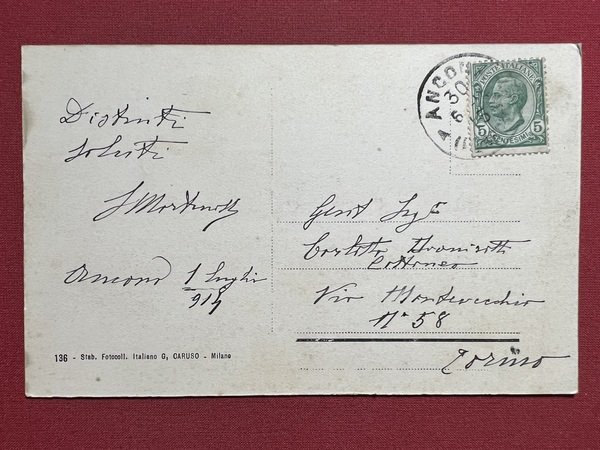 Distinti
saluti
Ancona 1 Luglio
914
ANCONA
30
6
POSTE ITALIANE
5 5
CENTESIMI
Gent Sig
Carlotta
Cattaneo
Via Montevecchio
N° 58
Torino
136 - Stab. Fotocoll. Italiano G, CARUSO - Milano